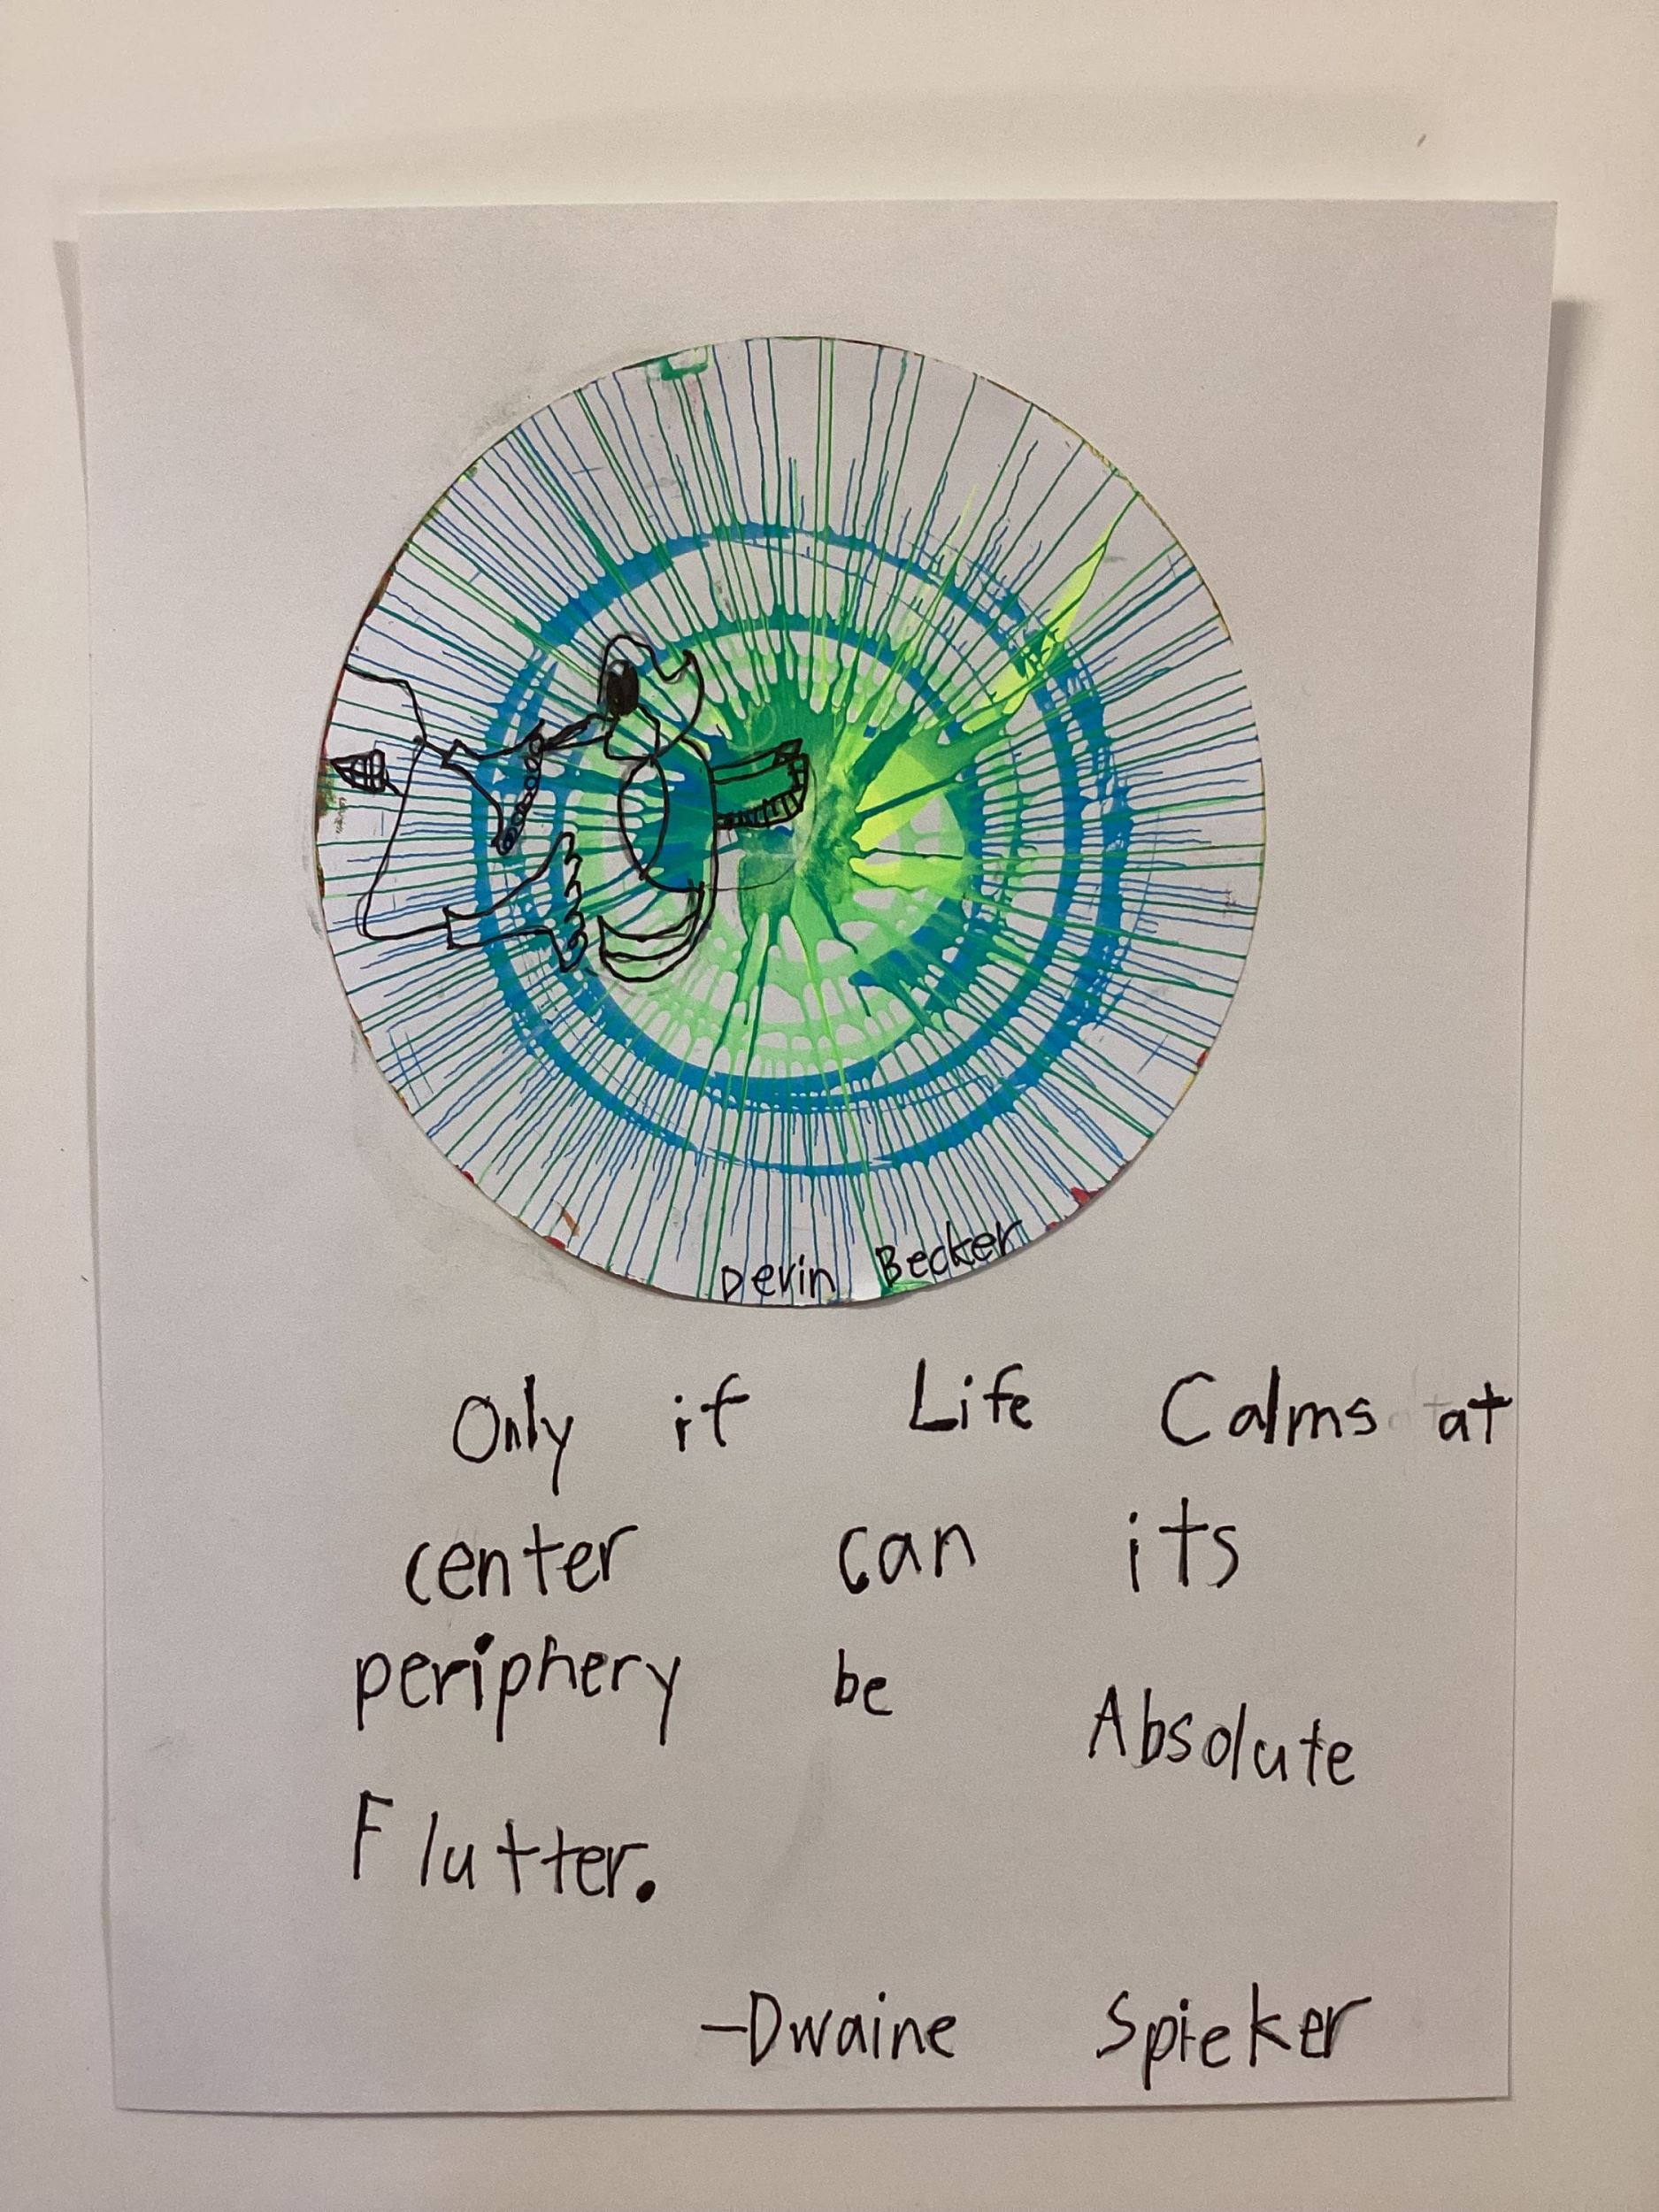 Devin Becker
Only if Life Calms at
center can its
periphery be Absolute
Flutter.
-Dwaine Spieker